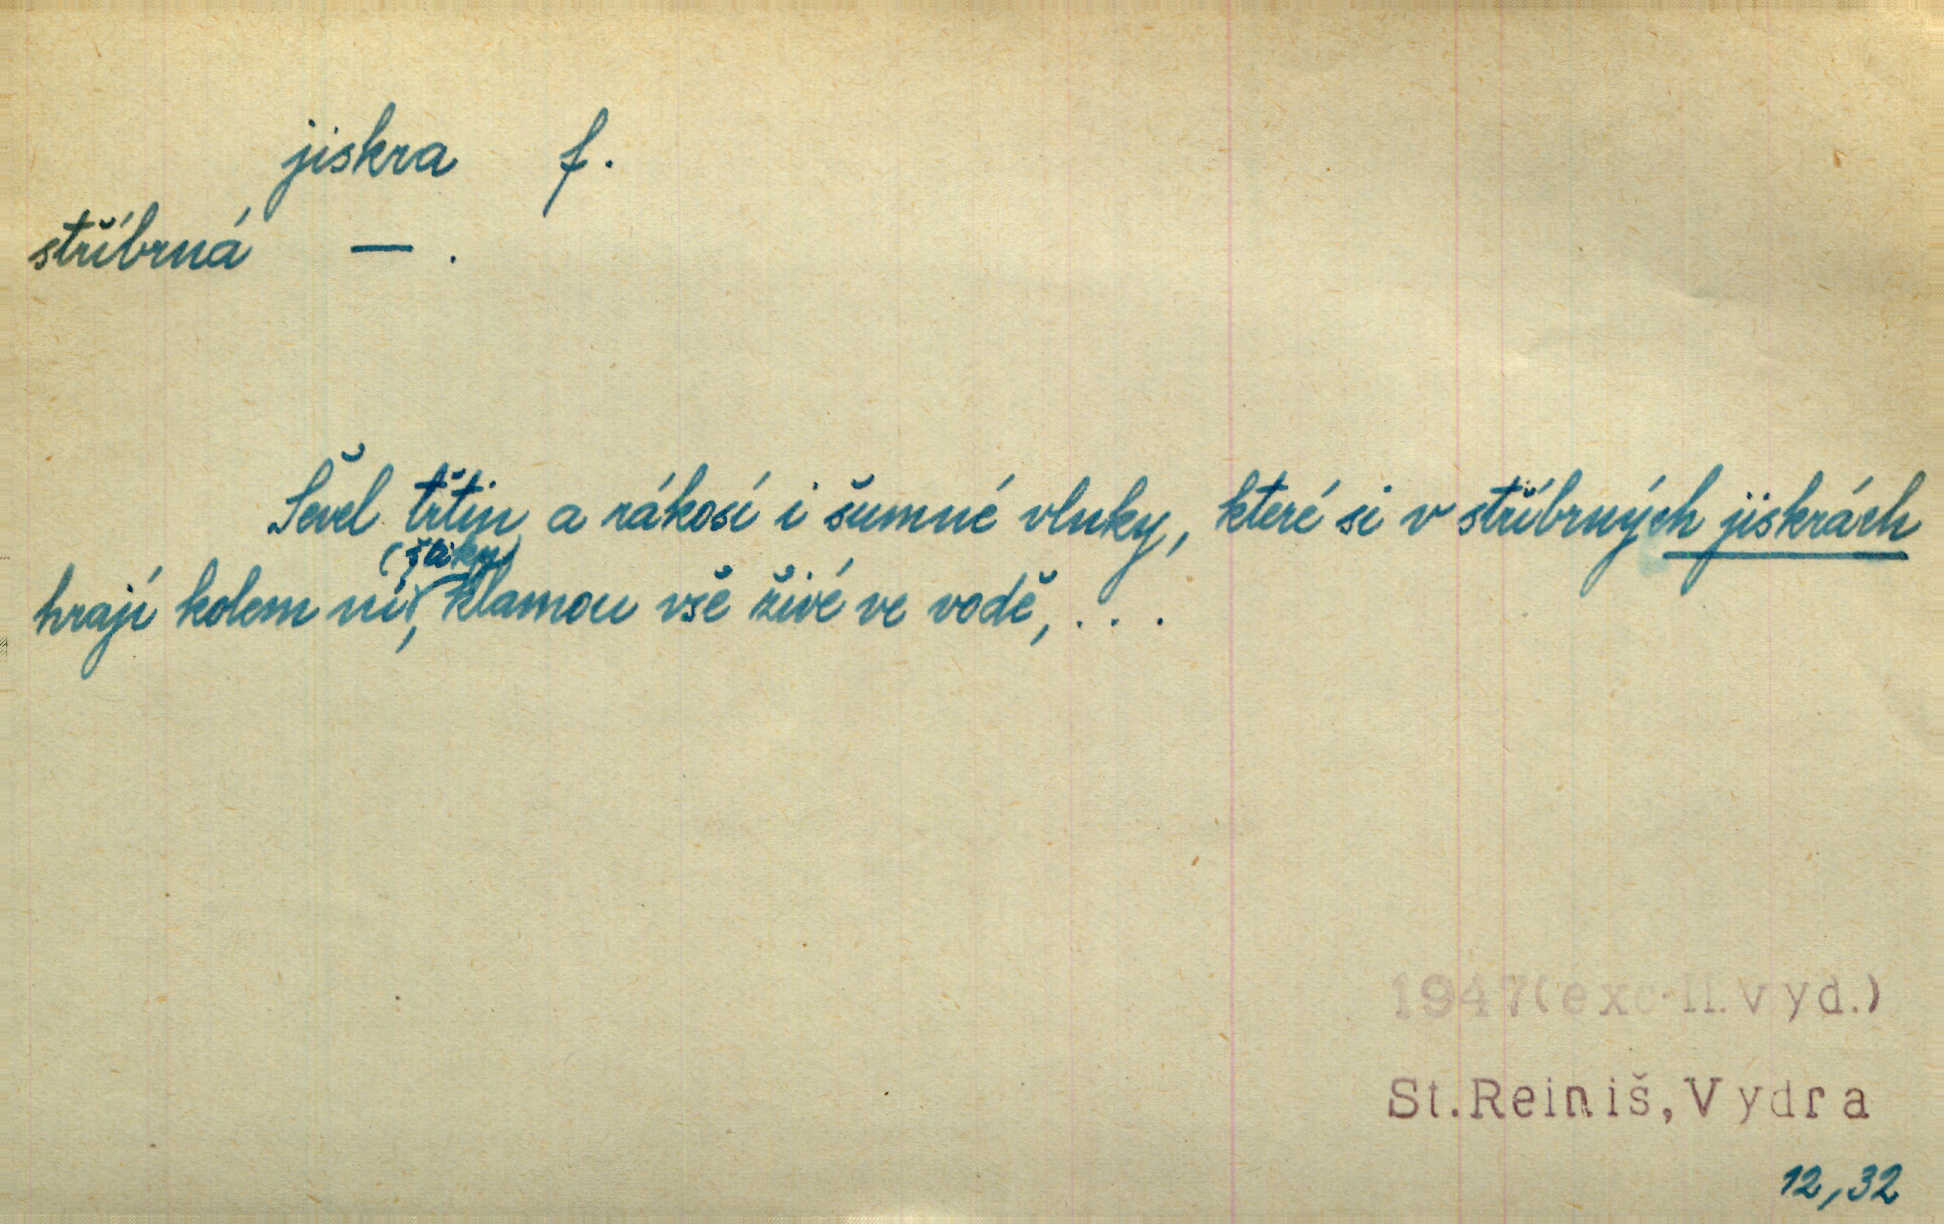 jiskra f.
stříbrná — .
Ševel třtin a rákosí i šumné vlnky, které si v stříbrných jiskrách
hrají kolem ní, klamou vše živé ve vodě, . . .
1947(exc. II. vyd.)
St. Reiniš, Vydra
12, 32